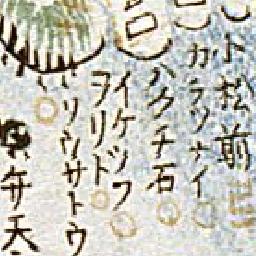 小松前
カラツナイ
ハクチ石
イケツフ
ヲリト
ソウサトウ
弁天